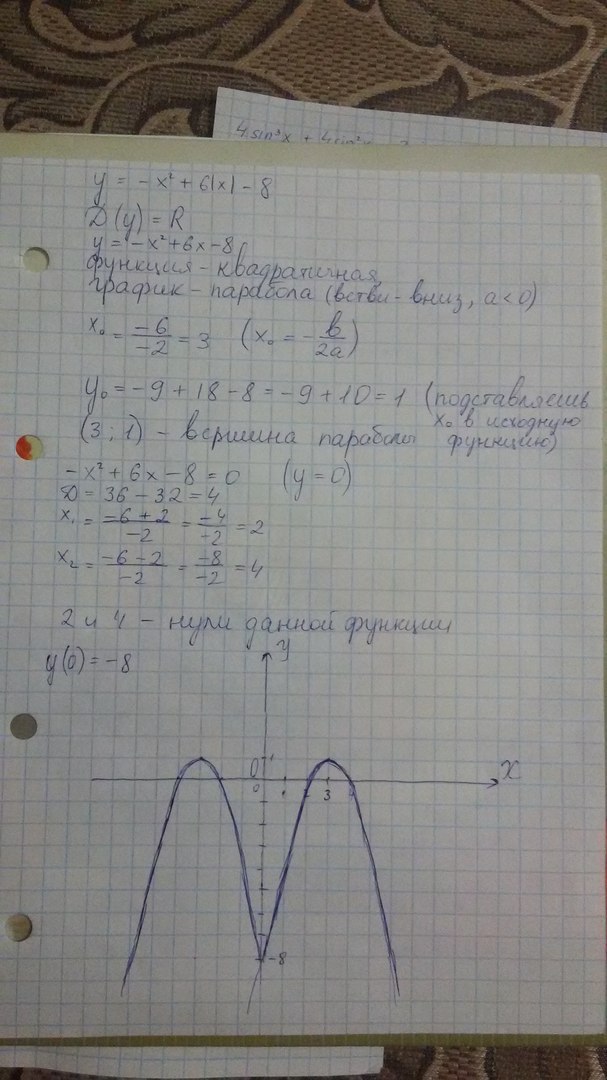 4 sin³x + 4 sin²x
y = -x² + 6|x| - 8
D(y) = R
y = -x² + 6x - 8
функция - квадратичная,
график - парабола (ветви - вниз, a < 0)
x₀ = -6/-2 = 3 (x₀ = -b/2a)
y₀ = -9 + 18 - 8 = -9 + 10 = 1 (подставляешь
x₀ в исходную
(3; 1) - вершина параболы функцию)
-x² + 6x - 8 = 0 (y = 0)
D = 36 - 32 = 4
x₁ = -6 + 2/-2 = -4/-2 = 2
x₂ = -6 - 2/-2 = -8/-2 = 4
2 и 4 - нули данной функции
y(0) = -8
y
1
x
0
3
-8